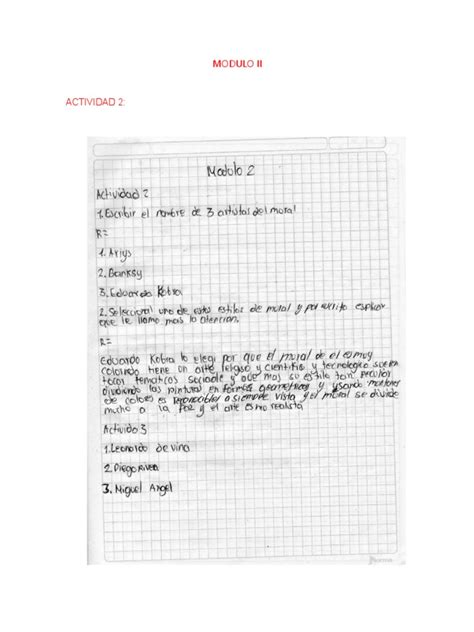 MODULO II
ACTIVIDAD 2:
Modulo 2
Actividad 2
1. Escribir el nombre de 3 artistas del moral
R=
1. Aryys
2. Banksy
3. Eduardo Kobra
2. Seleccional uno de estos estilos de mural y por escrito explicar
que le llamo mas la atencion.
R=
Eduardo Kobra lo elegi por que el mural de el es muy
colorido tiene un arte y cientifis y tecnologico
tocar tematicas sociale y que mas su estilo tan peculiar
dividiendo las pinturas en formas geometricas y usando
de colores es a siempre vista y el mural se divide
mucho a la Paz y el arte es mo realista
Activido 3
1. Leonardo de vina
2. Diego Rivea
3. Miguel Angel
Norma